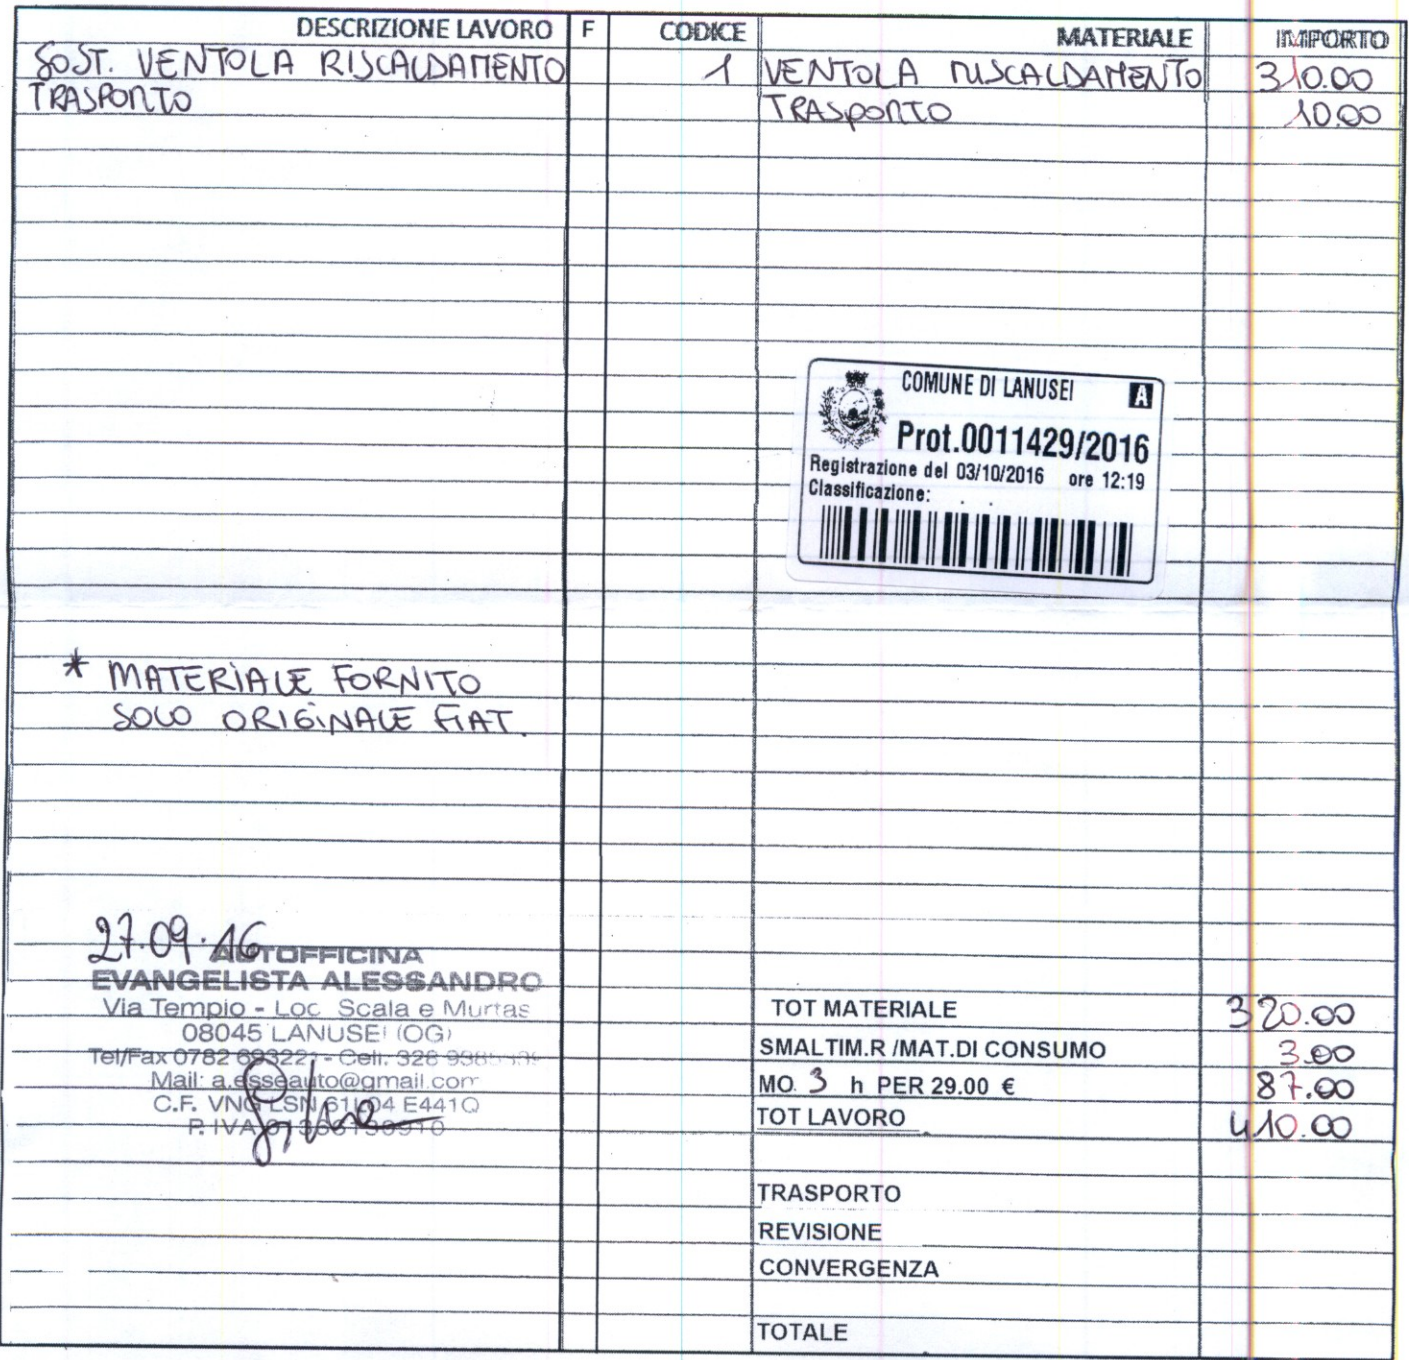 DESCRIZIONE LAVORO F CODICE MATERIALE IMPORTO
SOST. VENTOLA RISCALDAMENTO 1 VENTOLA RISCALDAMENTO 310.00
TRASPORTO TRASPORTO 10.00
COMUNE DI LANUSEI A
Prot.0011429/2016
Registrazione del 03/10/2016 ore 12:19
Classificazione:
* MATERIALE FORNITO
SOLO ORIGINALE FIAT.
27.09.16
AUTOFFICINA
EVANGELISTA ALESSANDRO
Via Tempio - Loc Scala e Murtas
08045 LANUSEI (OG)
Tel/Fax 0782 693221 - Cell. 328
Mail: a.esseauto@gmail.com
C.F. VNG LSN 61L04 E441Q
P. IVA
TOT MATERIALE 320.00
SMALTIM.R /MAT.DI CONSUMO 3.00
MO. 3 h PER 29.00 € 87.00
TOT LAVORO 410.00
TRASPORTO
REVISIONE
CONVERGENZA
TOTALE